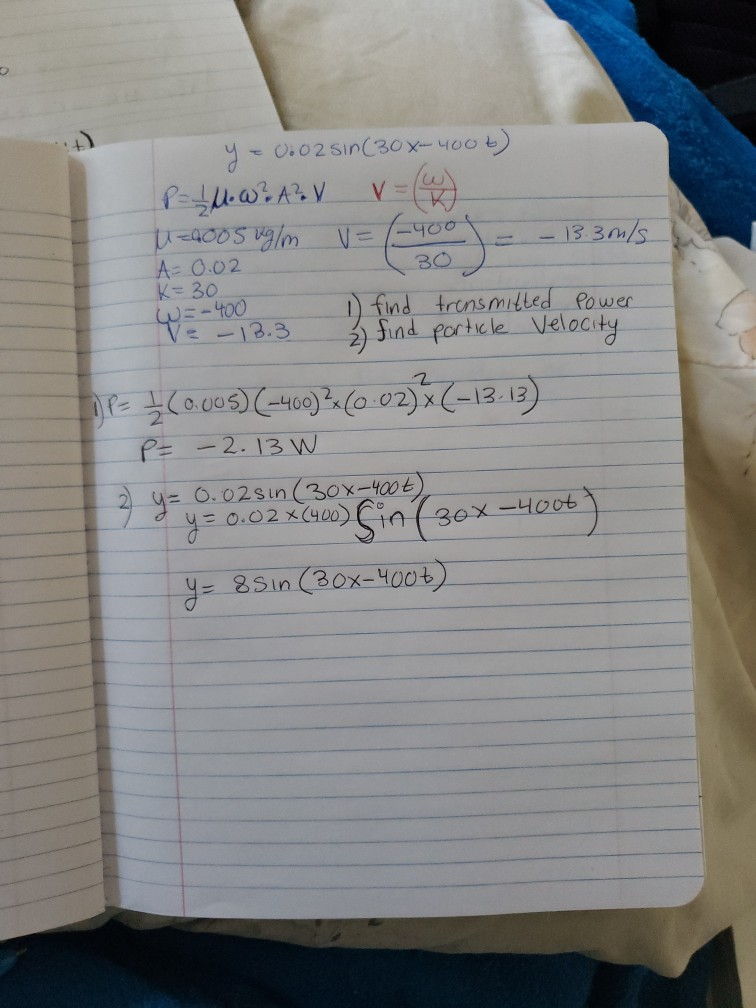 y = 0.02 sin(30x-400t)
P = 1/2 μ·ω²·A²·V V = (ω/K)
μ=0.005 kg/m V = (-400/30) = -13.3 m/s
A = 0.02
K = 30
ω = -400 1) find transmitted Power
V = -13.3 2) find particle Velocity
1) P = 1/2 (0.005)(-400)²×(0.02)²×(-13.13)
P = -2.13 W
2) y = 0.02 sin(30x-400t)
y = 0.02×(400) Sin(30x-400t)
y = 8 Sin(30x-400t)